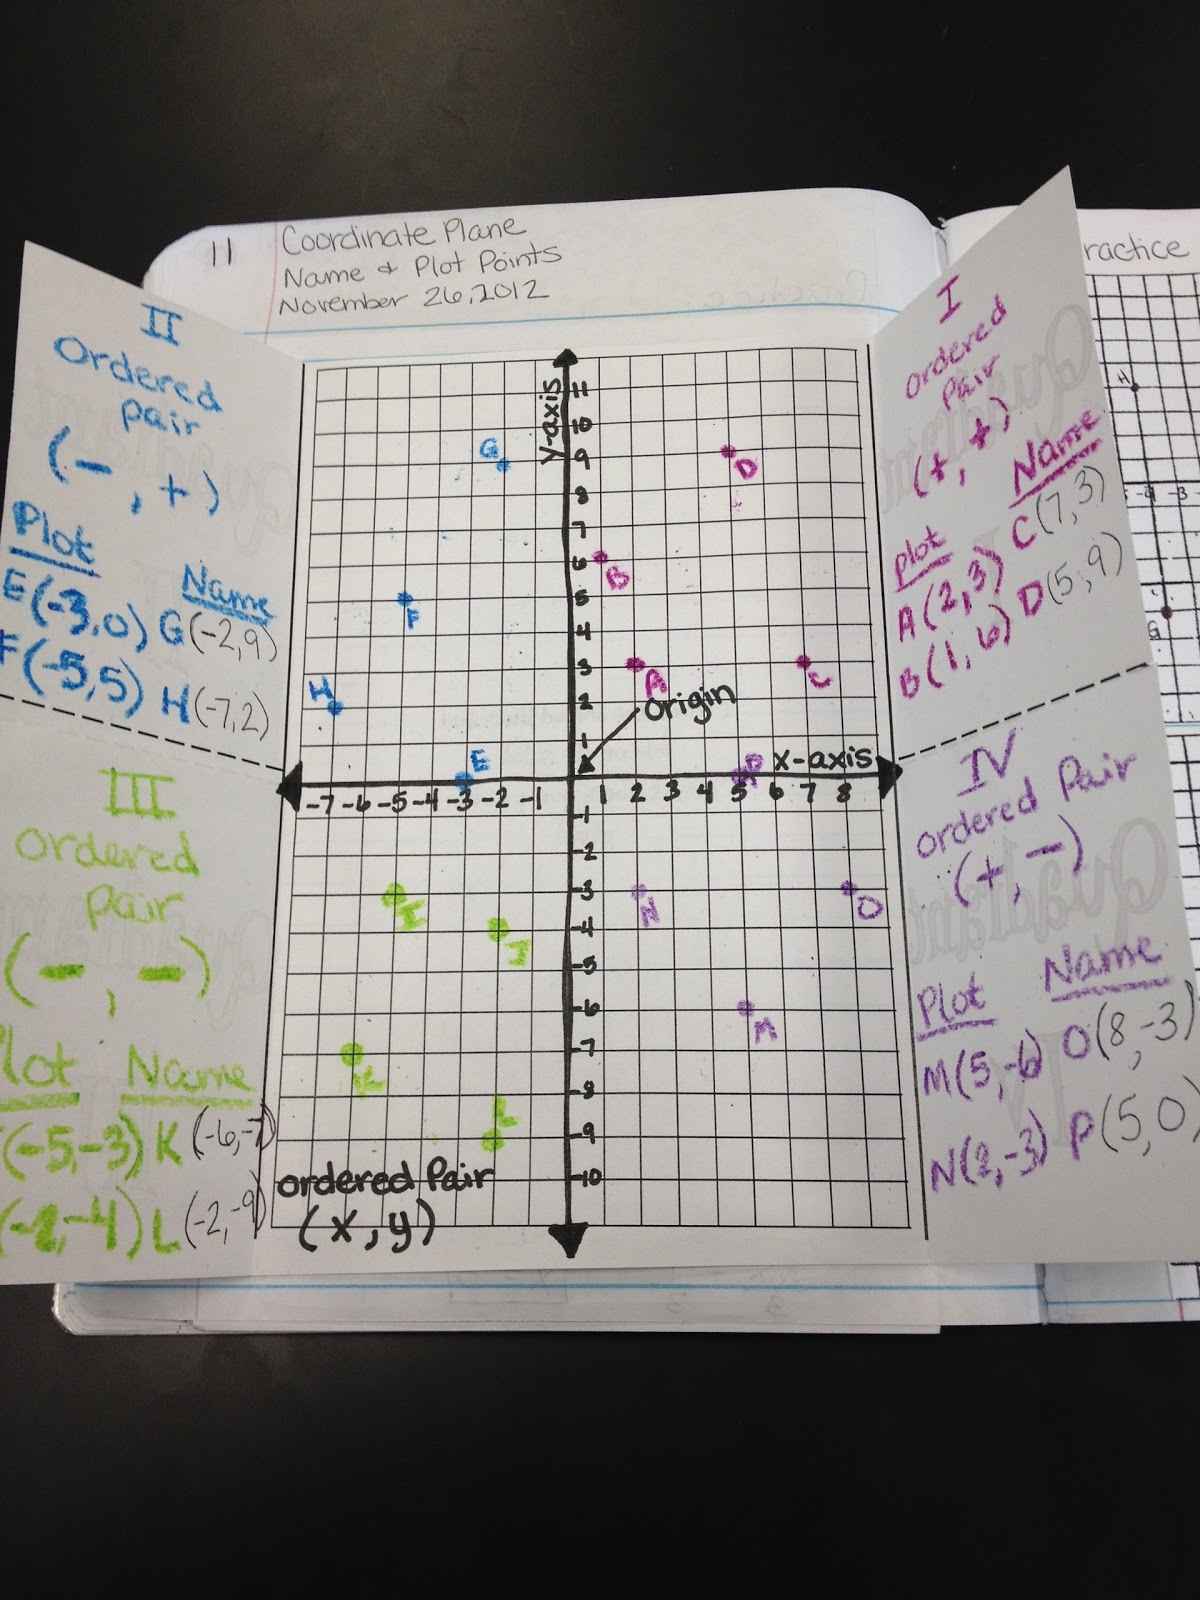 11
Coordinate Plane
Name & Plot Points
November 26, 2012
ractice
II
Ordered
pair
(-, +)
Plot
E(-3,0)
F(-5,5)
Name
G(-2,9)
H(-7,2)
III
Ordered
pair
(-, -)
Plot
(-5,-3)
(-2,-4)
Name
K(-6,-7)
L(-2,-9)
y-axis
11
10
9
8
7
6
5
4
3
2
1
G
D
B
F
A
C
H
Origin
E
P
x-axis
-7 -6 -5 -4 -3 -2 -1 1 2 3 4 5 6 7 8
-1
-2
-3
-4
-5
-6
-7
-8
-9
-10
I
J
N
O
M
K
L
Ordered Pair
(x, y)
I
Ordered
Pair
(+, +)
Plot
A(2,3)
B(1,6)
Name
C(7,3)
D(5,9)
IV
Ordered Pair
(+, -)
Plot
M(5,-6)
N(2,-3)
Name
O(8,-3)
P(5,0)
H
-3
G